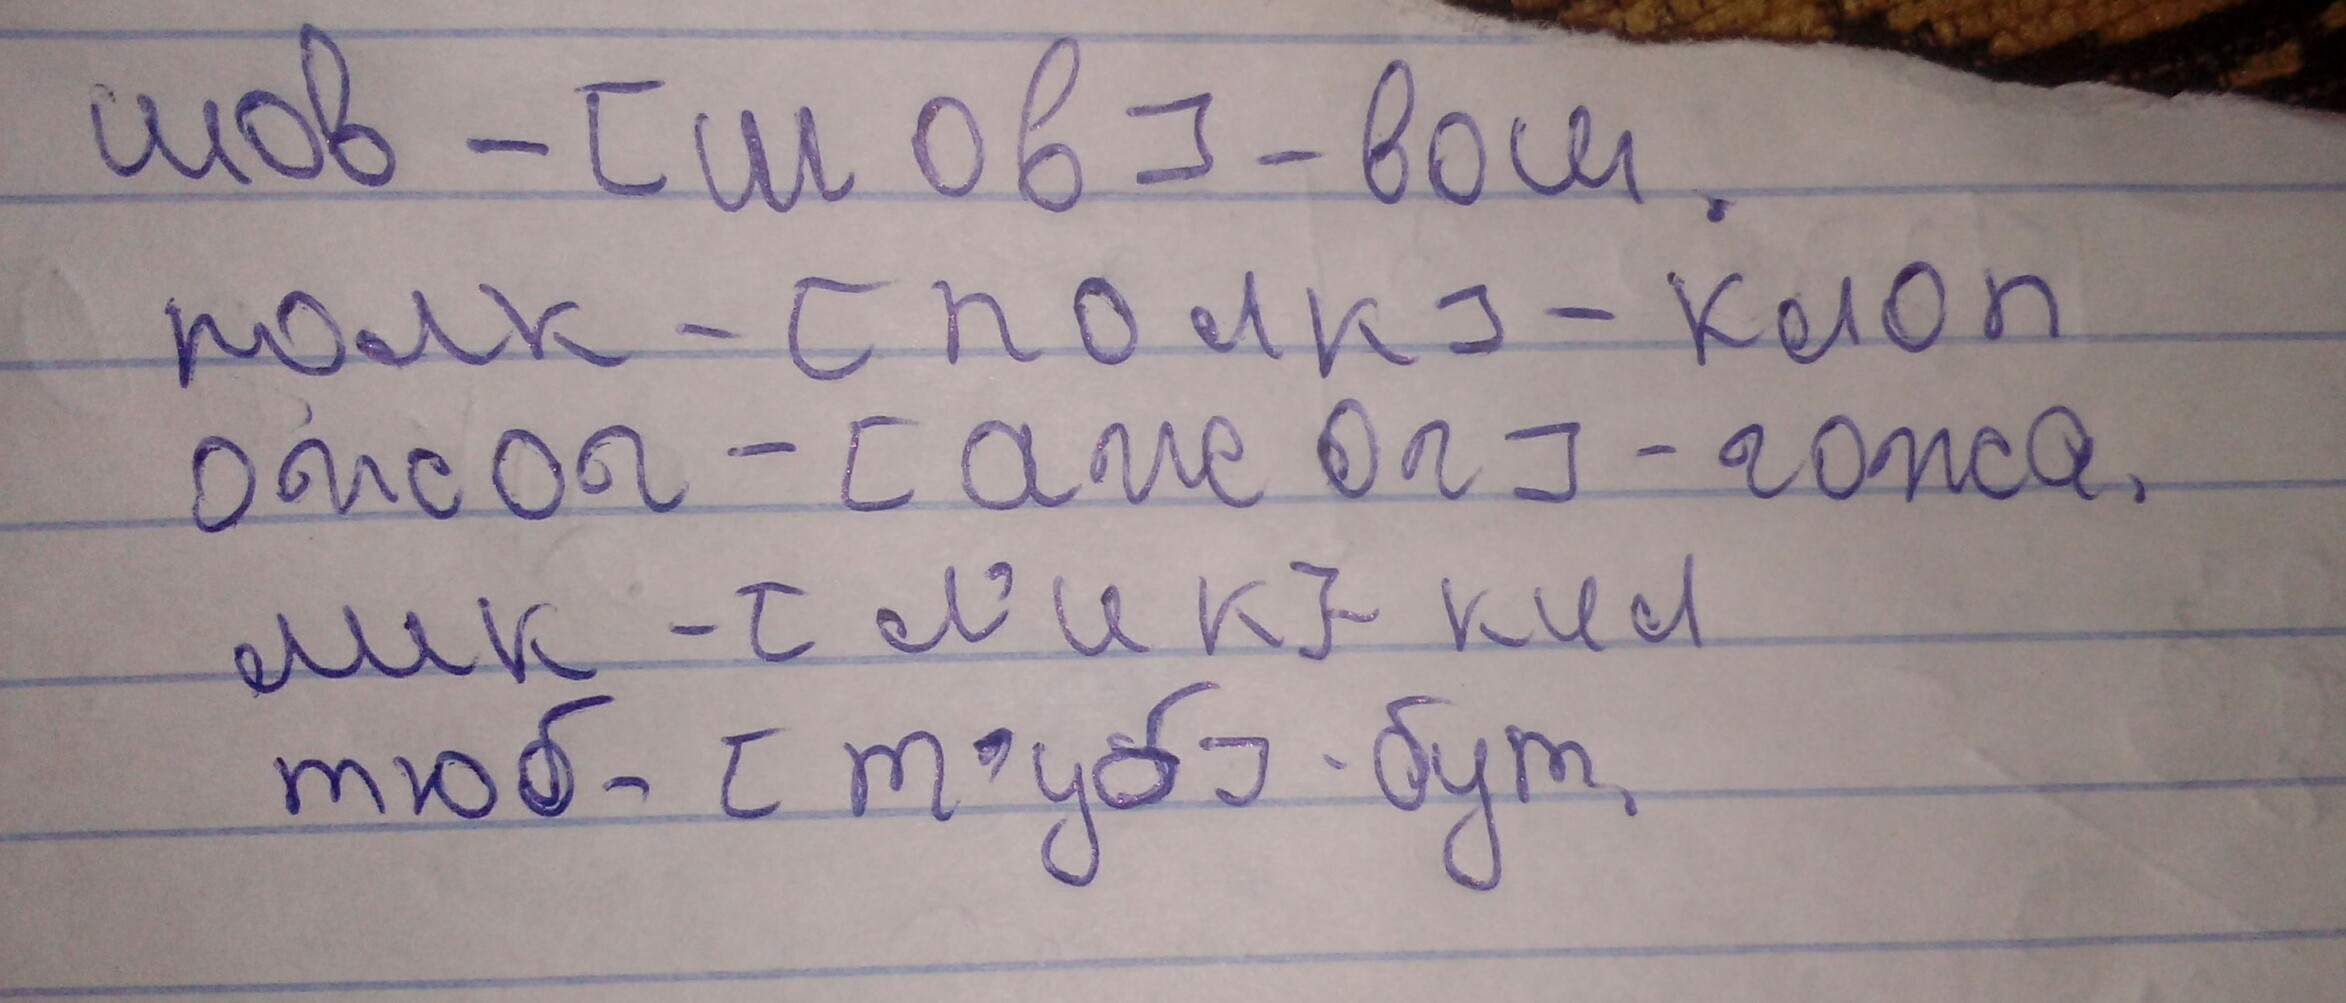 шов - [шов] - вош.
полк - [полк] - клоп
ожог - [ажог] - гожа.
лик - [л'ик] - кил
тюб - [т'уб] - бут.